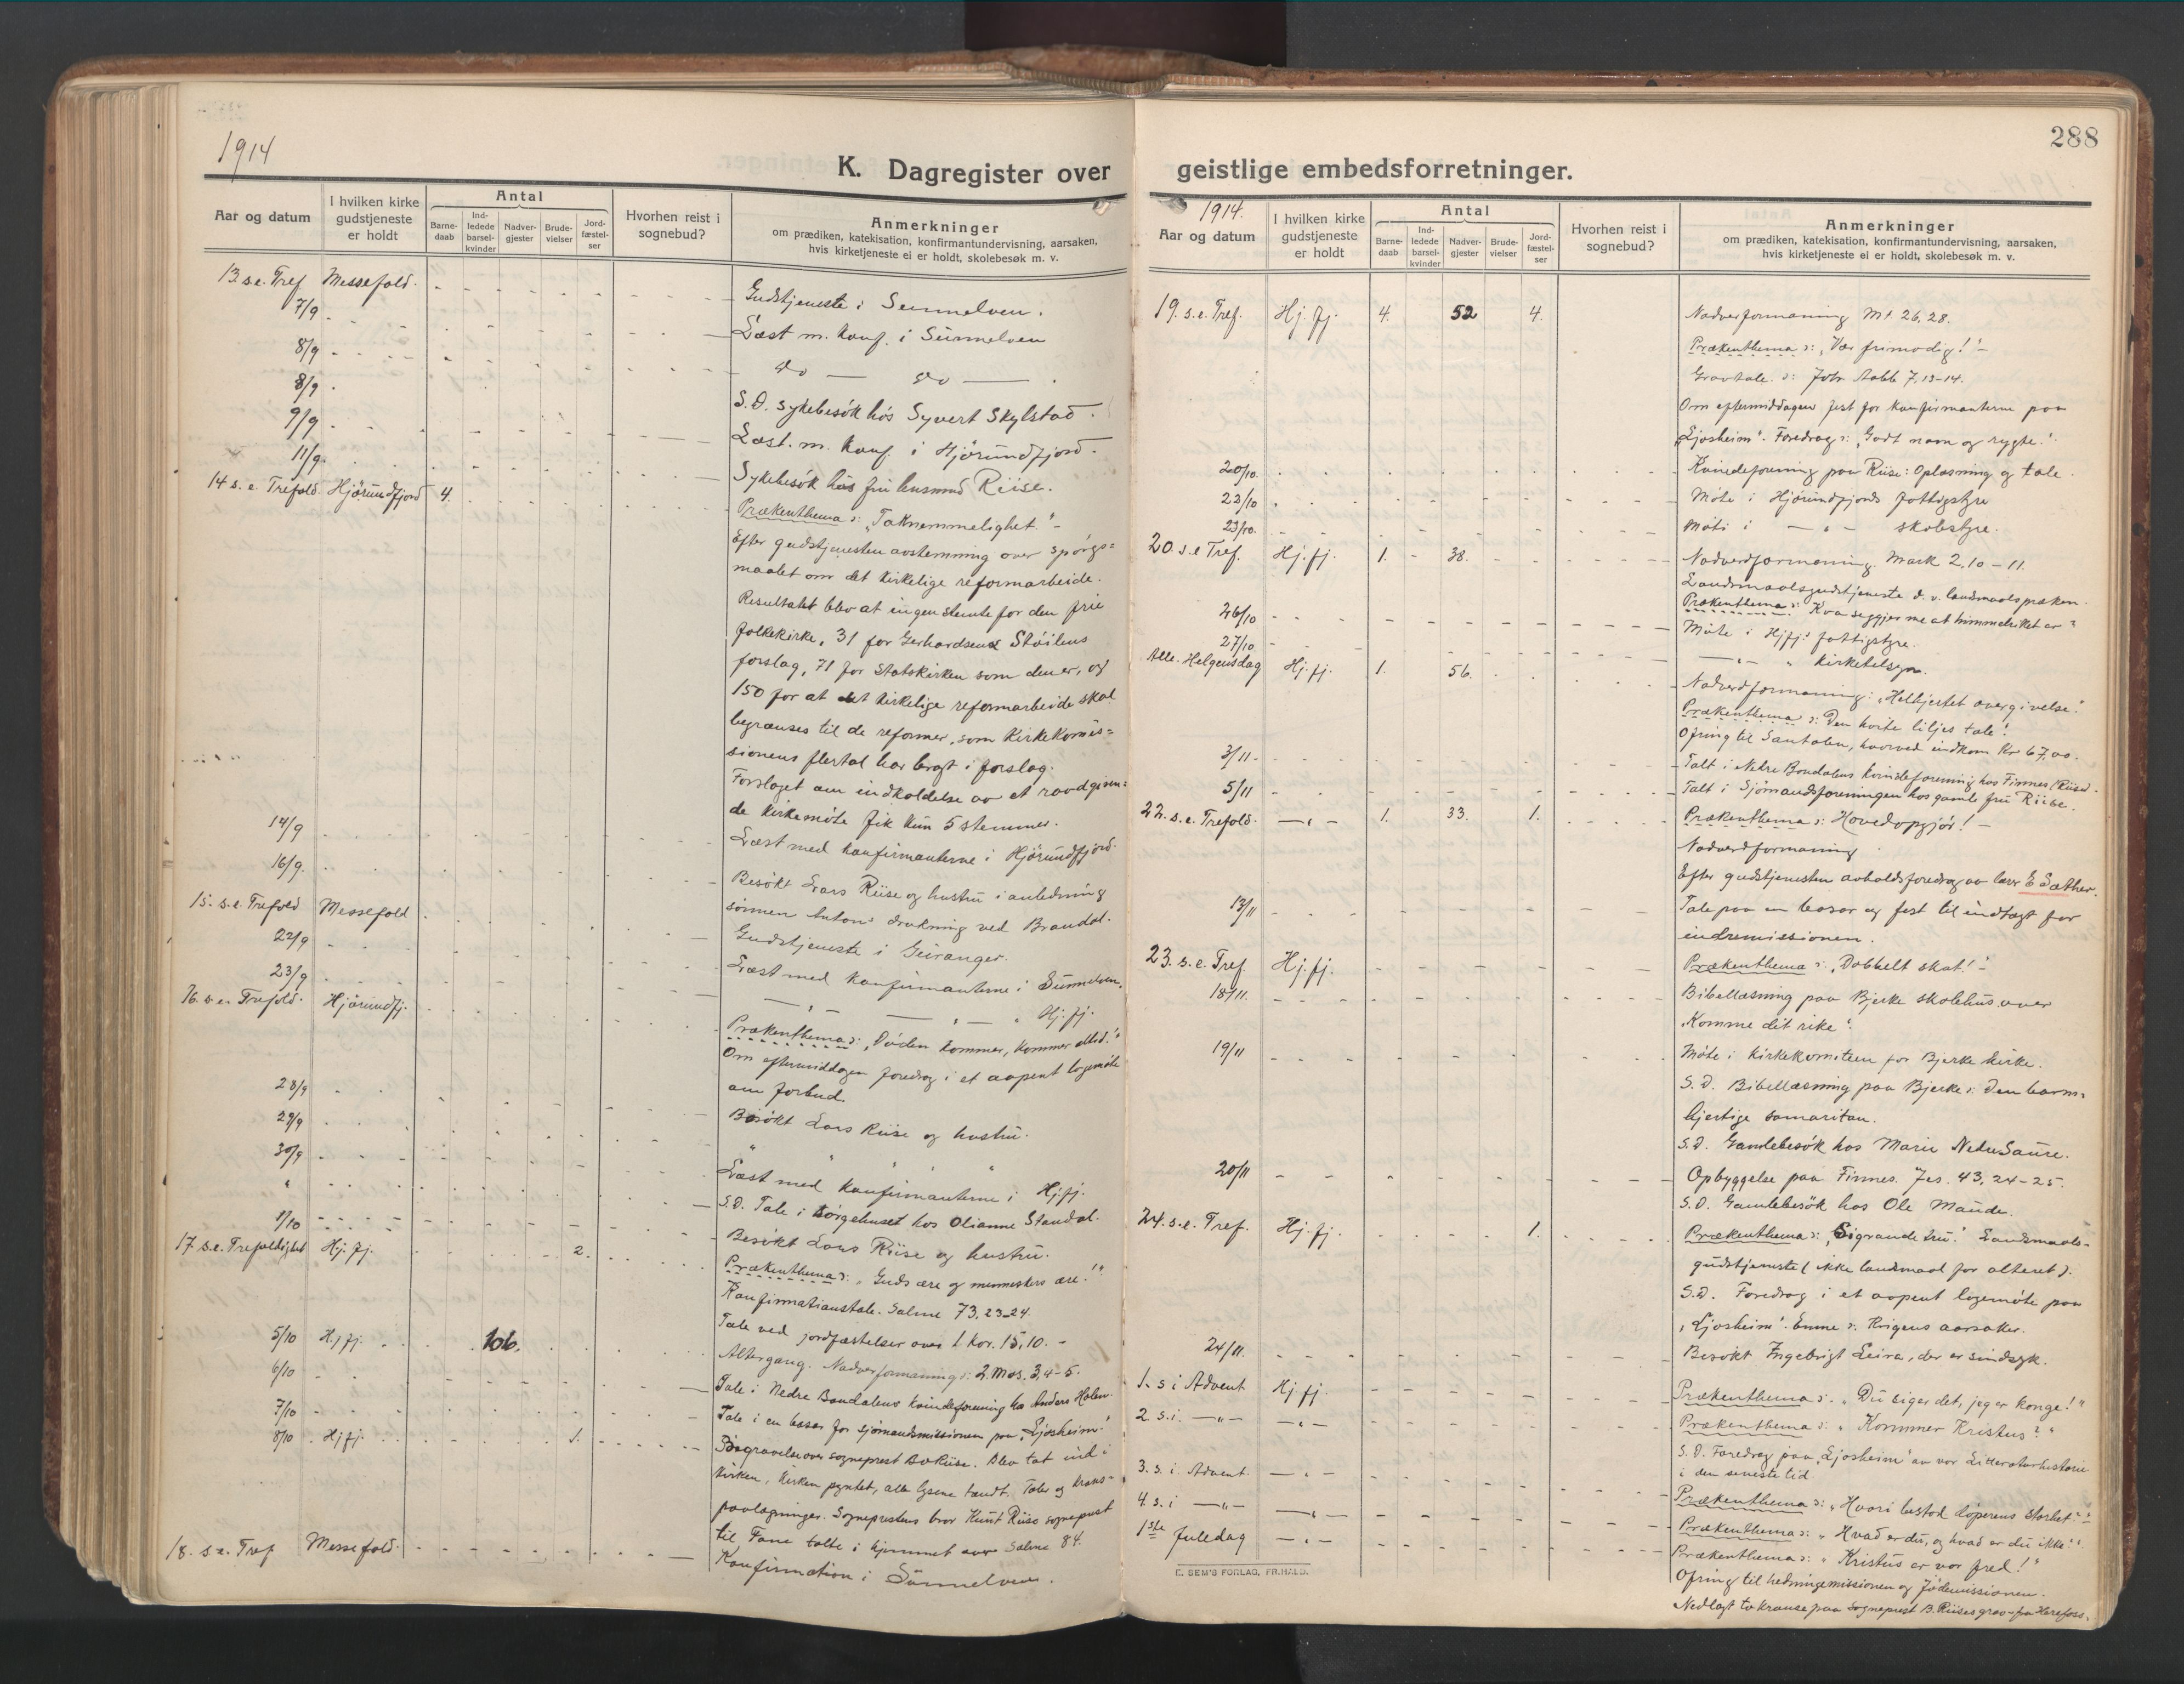 288
1914
K. Dagregister over geistlige embedsforretninger.
Aar og datum
I hvilken kirke gudstjeneste er holdt
Antal
Barne-daab
Ind-ledede barsel-kvinder
Nadver-gjester
Brude-vielser
Jord-fæstel-ser
Hvorhen reist i sognebud?
Anmerkninger
om prædiken, katekisation, konfirmantundervisning, aarsaken,
hvis kirketjeneste ei er holdt, skolebesøk m. v.
13. s.e. Tref Messefald. Gudstjeneste i Sunnelven.
7/9 Læst m. konf. i Sunnelven
8/9 do — do —
8/9 S.D. sykebesøk hos Syvert Skylstad.
9/9 Læst. m. konf. i Hjørundfjord.
11/9 Sykebesøk hos fru lensmand Riise.
14 s. e. Trefold. Hjørundfjord 4. Prækenthema: "Taknemmelighet." -
Efter gudstjenesten avstemning over spørgs=
maalet om det kirkelige reformarbeide.
Resultatet blev at ingen stemte for den frie
folkekirke, 31 for Gerhardsens Støilens
forslag, 71 for Statskirken som den er, og
150 for at det kirkelige reformarbeide skal
begrænses til de reformer, som Kirkekomis=
sionens flertal har bragt i forslag.
Forslaget om indkaldelse av et raadgiven=
de kirkemøte fik kun 5 stemmer.
14/9 Læst med konfirmanterne i Hjørundfjord.
16/9. Besøkt Lars Riise og hustru i anledning
sønnen Antons drukning ved Brandal.
15. s.e. Trefold Messefald Gudstjeneste i Geiranger.
22/9 Læst med konfirmanterne i Sunnelven.
23/9 — " — — " — " Hj.fj.
16 s.e. Trefold. Hjørundfj. Prækenthema: "Døden kommer, kommer altid."
Om eftermiddagen foredrag i et aapent logemøte
om forbud.
28/9 Besøkt Lars Riise og hustru.
29/9 " " " " "
30/9 Læst med konfirmanterne i Hj.fj.
" S.D. Tale i sørgehuset hos Olianne Standal.
1/10 Besøkt Lars Riise og hustru.
17. s.e. Trefoldighet Hj. fj. 2. Prækenthema: "Guds ære og menneskers ære!"
Konfirmationstale. Salme 73, 23-24.
Tale ved jordfæstelser over 1 Kor. 15, 10. -
5/10 Hj. fj. 106. Altergang. Nadverformaning: 2. Mos. 3, 4-5.
6/10 Tale i Nedre Bondalens kvindeforening hos Anders Holen.
7/10 Tale i en basar for sjømandsmissionen paa "Ljosheim."
8/10 Hj.fj. 1. Begravelse over sogneprest Bo Riise. Blev tat ind i
kirken, kirken pyntet, alle lysene tændt. Taler og krans-
paalægninger. Sogneprestens bror Knut Riise sogneprest
til Fane talte i hjemmet over Salme 84.
18. s.e. Tref Messefald. Konfirmation i Sunnelven.
1914.
Aar og datum
I hvilken kirke gudstjeneste er holdt
Antal
Barne-daab
Ind-ledede barsel-kvinder
Nadver-gjester
Brude-vielser
Jord-fæstel-ser
Hvorhen reist i sognebud?
Anmerkninger
om prædiken, katekisation, konfirmantundervisning, aarsaken,
hvis kirketjeneste ei er holdt, skolebesøk m. v.
19. s.e. Tref. Hj. fj. 4. 52 4. Nadverformaning Mt. 26, 28.
Prækenthema: "Vær frimodig!" -
Gravtale: Joh. Aabb 7, 13-14.
Om eftermiddagen fest for konfirmanterne paa
"Ljosheim". Foredrag: "Godt navn og rygte."
20/10. Kvindeforening paa Riise: Oplæsning og tale.
23/10 Møte i Hjørundfjords fattigstyre
23/10. Møte i — " — skolestyre.
20. s.e Tref. Hj. fj. 1. 38. Nadverdformaning. Mark 2, 10-11.
Landsmaalsgudstjeneste d. v. landsmaalspræken.
Prækenthema: Kva seggjer me at himmelriket er?
26/10 Møte i Hj.fj.s fattigstyre.
27/10 — " — " kirketilsyn.
Alle. Helgensdag Hj. fj. 1. 56. Nadverdformaning: "Helhjertet overgivelse."
Prækenthema: Den hvite liljes tale!
Ofring til Santalen, hvorved indkom Kr 67,00.
3/11. Talt i Nedre Bondalens kvindeforening hos Finnes (Riise).
5/11 Talt i Sjømandsforeningen hos gamle fru Riise.
22. s.e. Trefold. — " — 1. 33. 1. Prækenthema: Hovedopgjør! -
Nadverdformaning
Efter gudstjenesten avholdsforedrag av lærer E Sæther.
13/11 Tale paa en basar og fest til indtægt for
indremissionen.
23. s.e. Tref Hj. fj. Prækenthema: "Dobbelt skat!" -
18/11. Bibellæsning paa Bjerke skolehus over
"Komme dit rike".
19/11 Møte i kirkekomiteen for Bjerke kirke.
S.D. Bibellæsning paa Bjerke: Den barm=
hjertige samaritan.
S.D. Gamlebesøk hos Marie Nedre Saure.
20/11 Opbyggelse paa Finnes. Jes. 43, 24-25.
S.D. Gamlebesøk hos Ole Maude.
24. s.e. Tref. Hj. fj. 1. Prækenthema: "Sigrande tru." Landsmaals-
gudstjeneste (ikke landsmaal for alteret).
S.D. Foredrag i et aapent logemøte paa
"Ljosheim". Emne: Krigens aarsaker.
24/11. Besøkt Ingebrigt Leira, der er sindsyk.
1. s i Advent Hj. fj. Prækenthema: "Du siger det, jeg er konge!"
2. s.i. — " — — " — Prækenthema: "Kommer Kristus?"
S.D. Foredrag paa "Ljosheim" av vor Litteraturhistorie
i den seneste tid.
3. s. i. Advent. — " — Prækenthema: "Hvori bestod døperens storhet?"
4. s. i — " — — " — Prækenthema: "Hvad er du, og hvad er du ikke?"
1ste Juledag — " — Prækenthema: "Kristus er vor fred!"
Ofring til hedningemissionen og Jødemissionen.
Nedlagt to kranse paa Sogneprest B. Riises grav - fra Herefoss.
E. SEM'S FORLAG, FR.HALD.